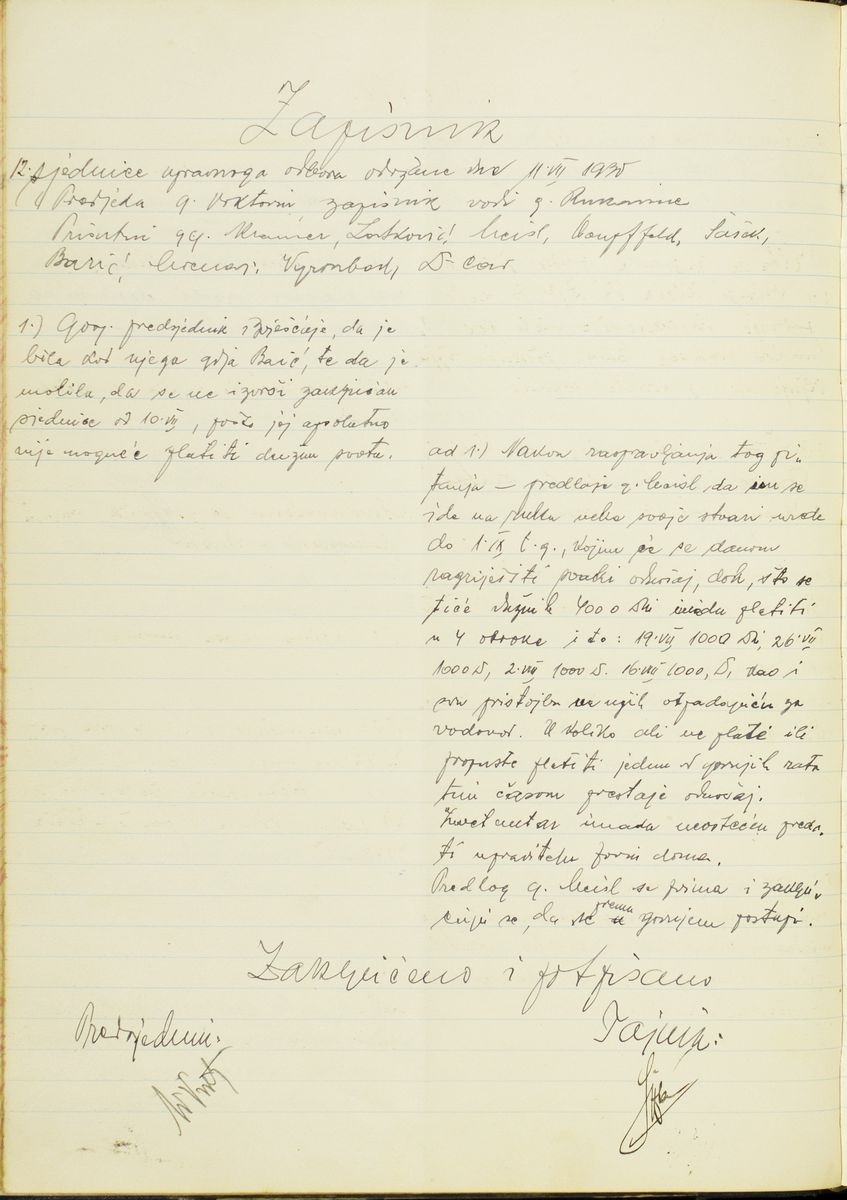 Zapisnik
12. sjednice upravnoga odbora održane dne 11. VII 1930
Predsjeda g. zapisnik vodi g.
Prisutni gg. Kramer, Zlatković, Meisl, Šašek,
Barić,
1.) Gosp. predsjednik izvješćuje, da je
bila kod njega gđja Baić, te da je
molila, da se ne izvrši zaključak
sjednice od 10. VII, pošto joj apsolutno
nije moguće platiti dužnu svotu.
ad 1.) Nakon raspravljanja tog pi„
tanja – predlaže g. Meisl da im se
ide na ruku neka svoje stvari urede
do 1. IX t. g., kojim će se danom
razriješiti svaki odnošaj, dok, što se
tiče dužnih 4000 Din imadu platiti
u 4 obroka i to: 19. VII 1000 Di, 26. VII
1000 D, 2. VIII 1000 D. 16. VIII 1000, D, kao i
svu pristojbu na njih otpadajuću za
vodovod. U koliko ali ne plate ili
propuste platiti jednu od gornjih rata
tim časom prestaje odnošaj.
Inventar imadu neoštećen preda„
ti upravitelju doma.
Predlog g. Meisl se prima i zaklju„
čuje se, da se prema gornjem postupi.
Zaključeno i potpisano
Predsjednik:
Tajnik: